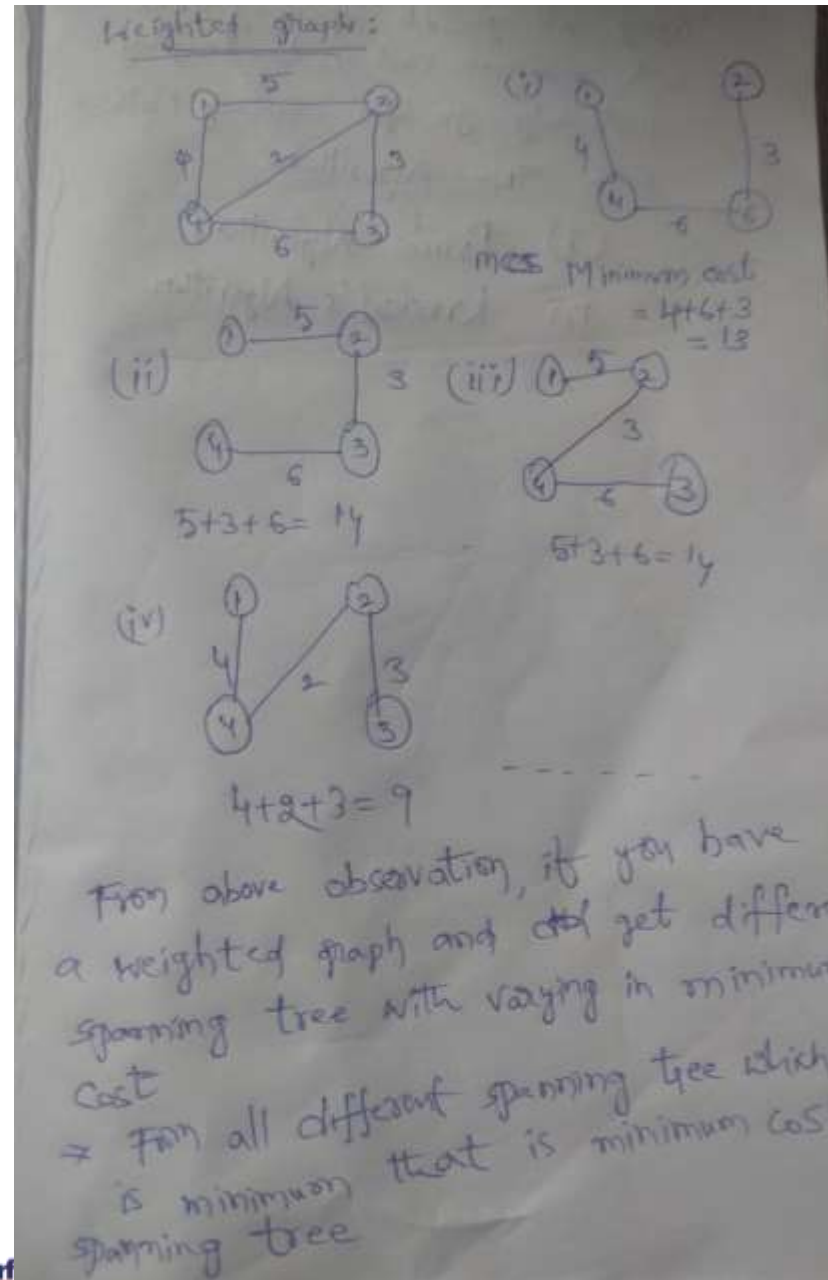 Weighted graph:
5
1 2
4 2 3
4 3
6
(i) 1 2
4 3
4
6
mcs Minimum cost
= 4+6+3
= 13
(ii) 1 5 2
3
4 3
6
5+3+6= 14
(iii) 1 5 2
3
4 6 3
5+3+6= 14
(iv) 1 2
4 2 3
4 3
4+2+3= 9
From above observation, if you have
a weighted graph and get differen
spanning tree with varying in minimu
cost
⇒ From all different spanning tree which
is minimum that is minimum cos
spanning tree
rf